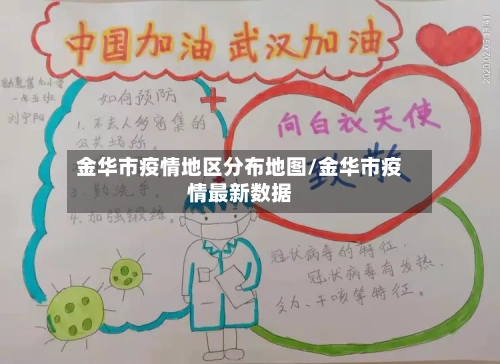 中国加油 武汉加油
一年五班
刘宁阳
如何预防
1.不去人多密集的
公共场所。
金华市疫情地区分布地图/金华市疫
情最新数据
3.勤洗手。
4.加强锻练。
向白衣天使
致敬
冠状病毒的特征.
冠状病毒有发热、
乏力、干咳等特征。